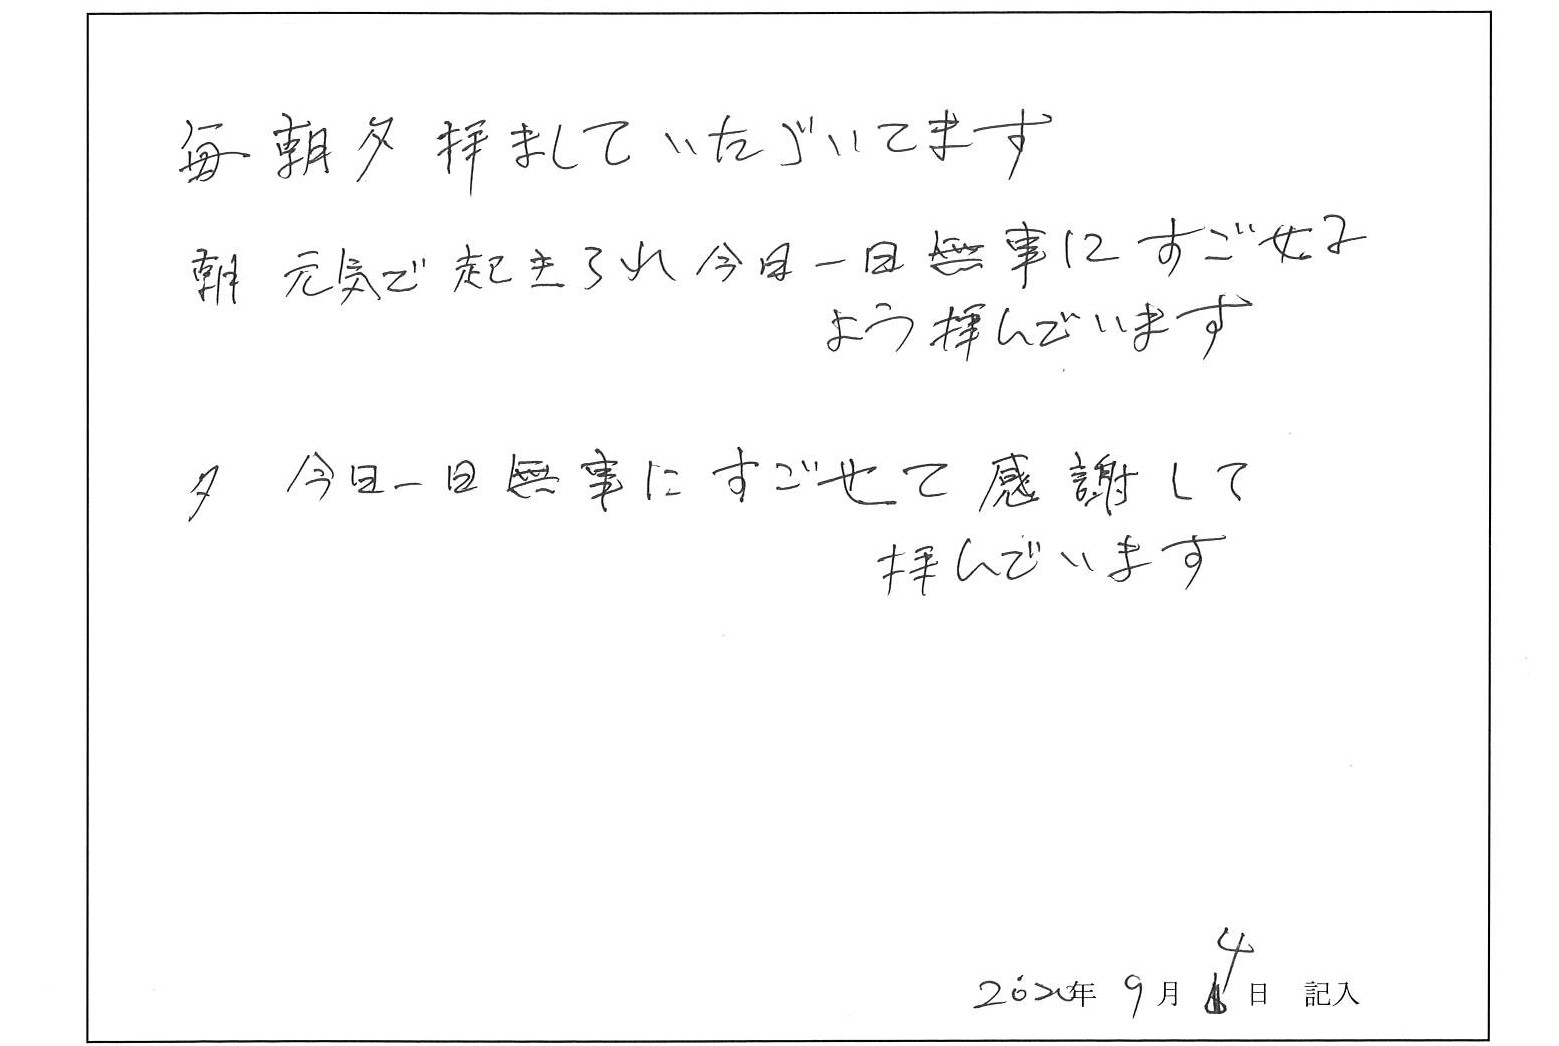 毎朝夕拝ましていたづいてます
朝 元気で起きられ今日一日無事にすごせる
よう拝んでいます
夕 今日一日無事にすごせて感謝して
拝んでいます
2020年 9月 4日 記入